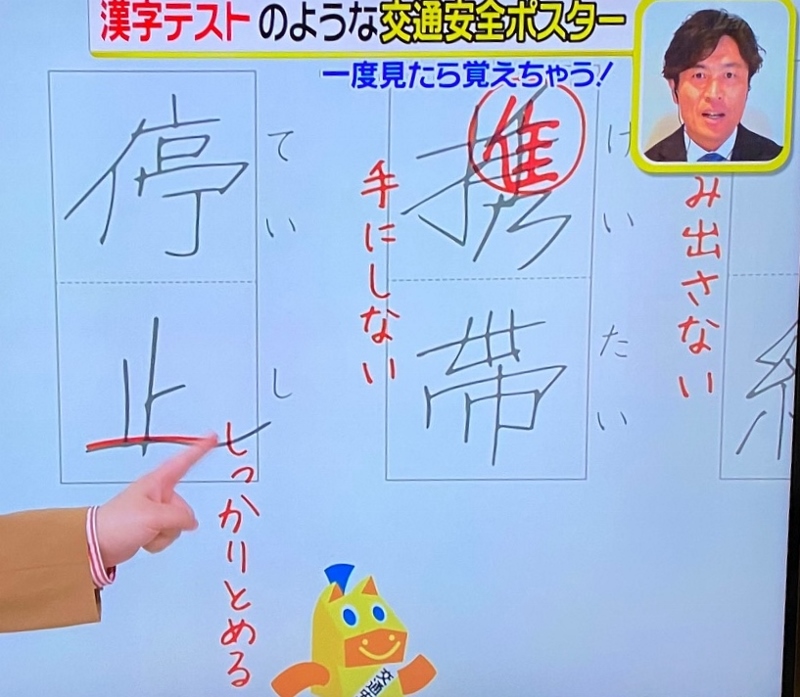 漢字テストのような交通安全ポスター
一度見たら覚えちゃう!
み出さない
携帯
けいたい
手にしない
停止
ていし
しっかりとめる
交通